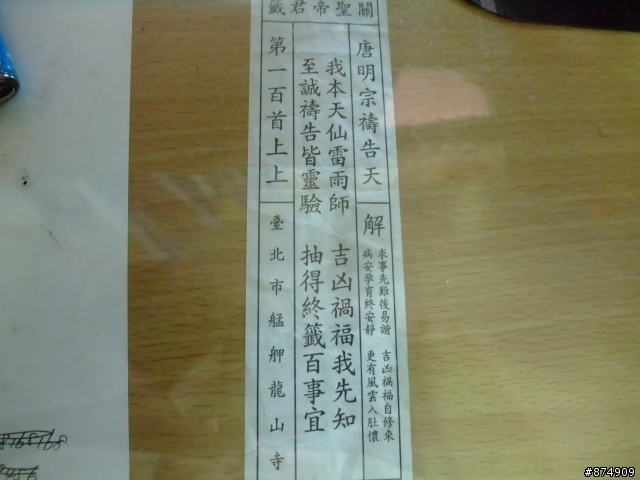 關聖帝君籤
唐明宗禱告天
解
求事先難後易諧 吉凶禍福自修來
病安孕育終安靜 更有風雲入肚懷
我本天仙雷雨師 吉凶禍福我先知
至誠禱告皆靈驗 抽得終籤百事宜
第一百首上上
臺北市艋舺龍山寺
#874909